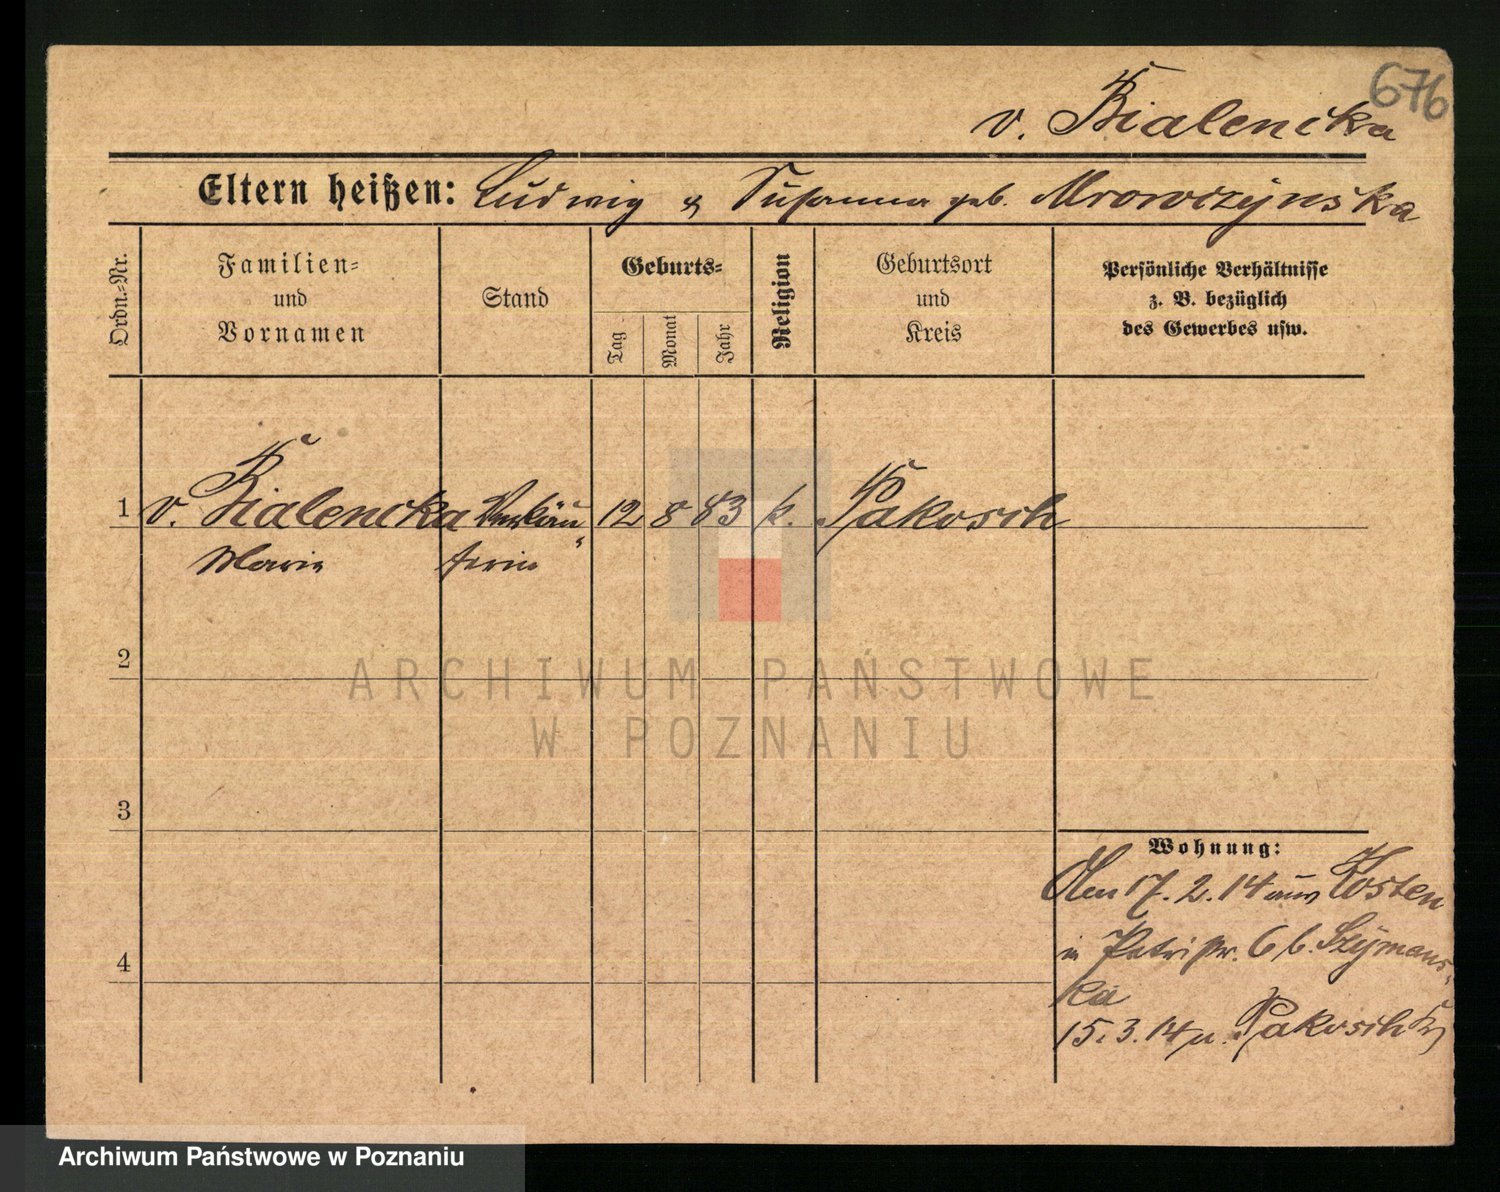 676
v. Bialencka
Eltern heißen: Ludwig & Susanna geb. Mrowczynska
Ordn.-Nr.
Familien-
und
Vornamen
Stand
Geburts-
Tag
Monat
Jahr
Religion
Geburtsort
und
Kreis
Persönliche Verhältnisse
z. B. bezüglich
des Gewerbes usw.
1 v. Bialencka Verkäu- 12 8 83 k. Pakosch
Marie ferin
2
ARCHIWUM PAŃSTWOWE
W POZNANIU
3
Wohnung:
Den 17. 2. 14 aus Kosten
in Petristr. 6 b. Szymans-
ka
4
15. 3. 14 n. Pakosch
Archiwum Państwowe w Poznaniu